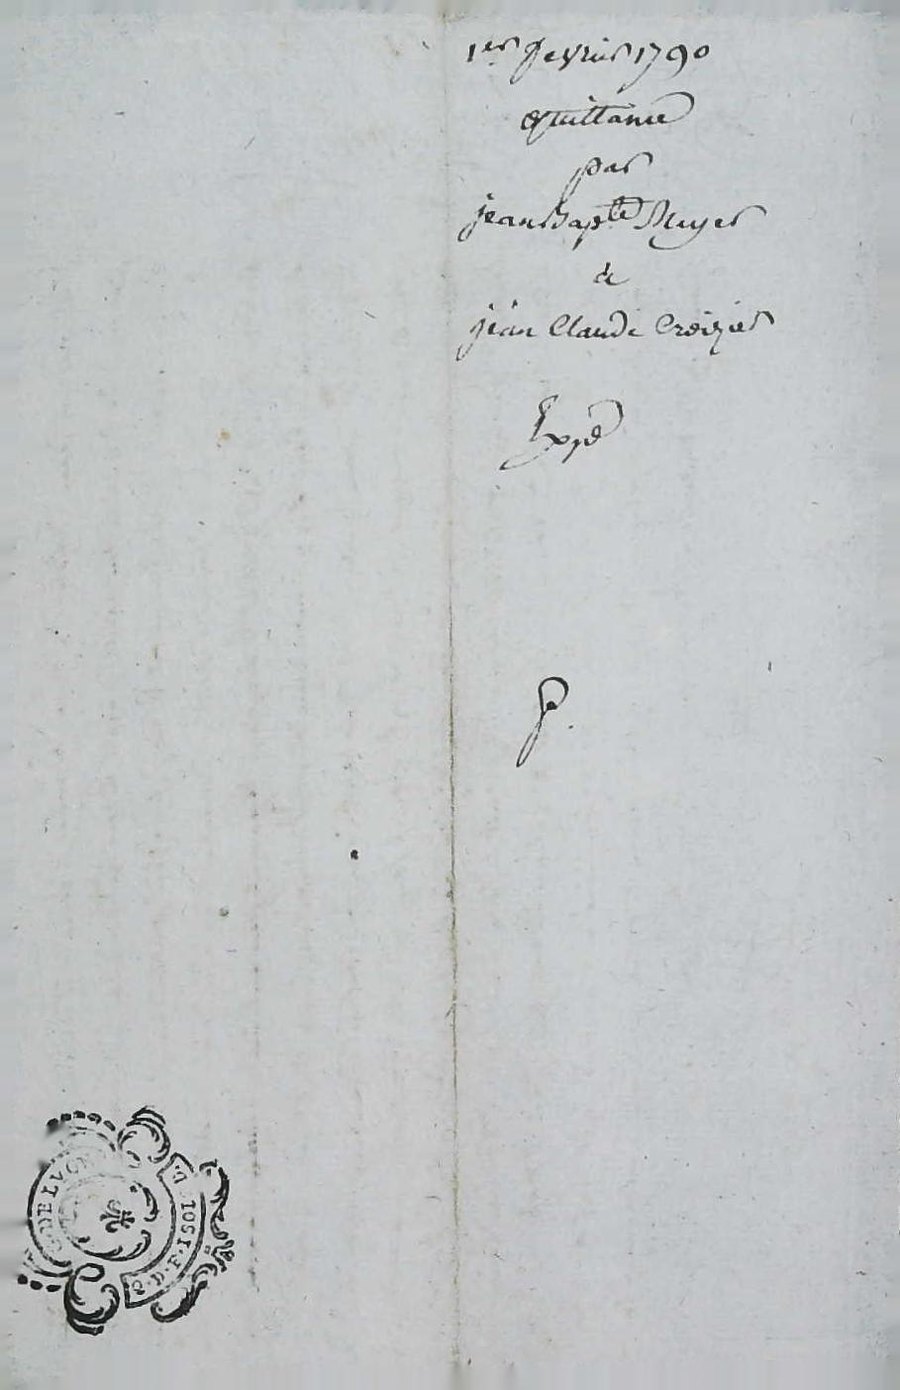 1er fevrier 1790
Quittance
par
jean Bapte Meyer
a
jean Claude Croizier
Expé
G. DE LYON
2. D. F. 1 SOL